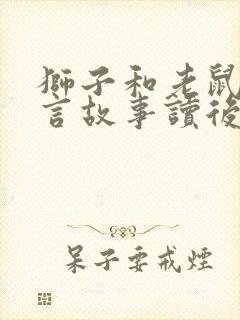 獅子和老鼠
言故事讀後
呆子要戒煙